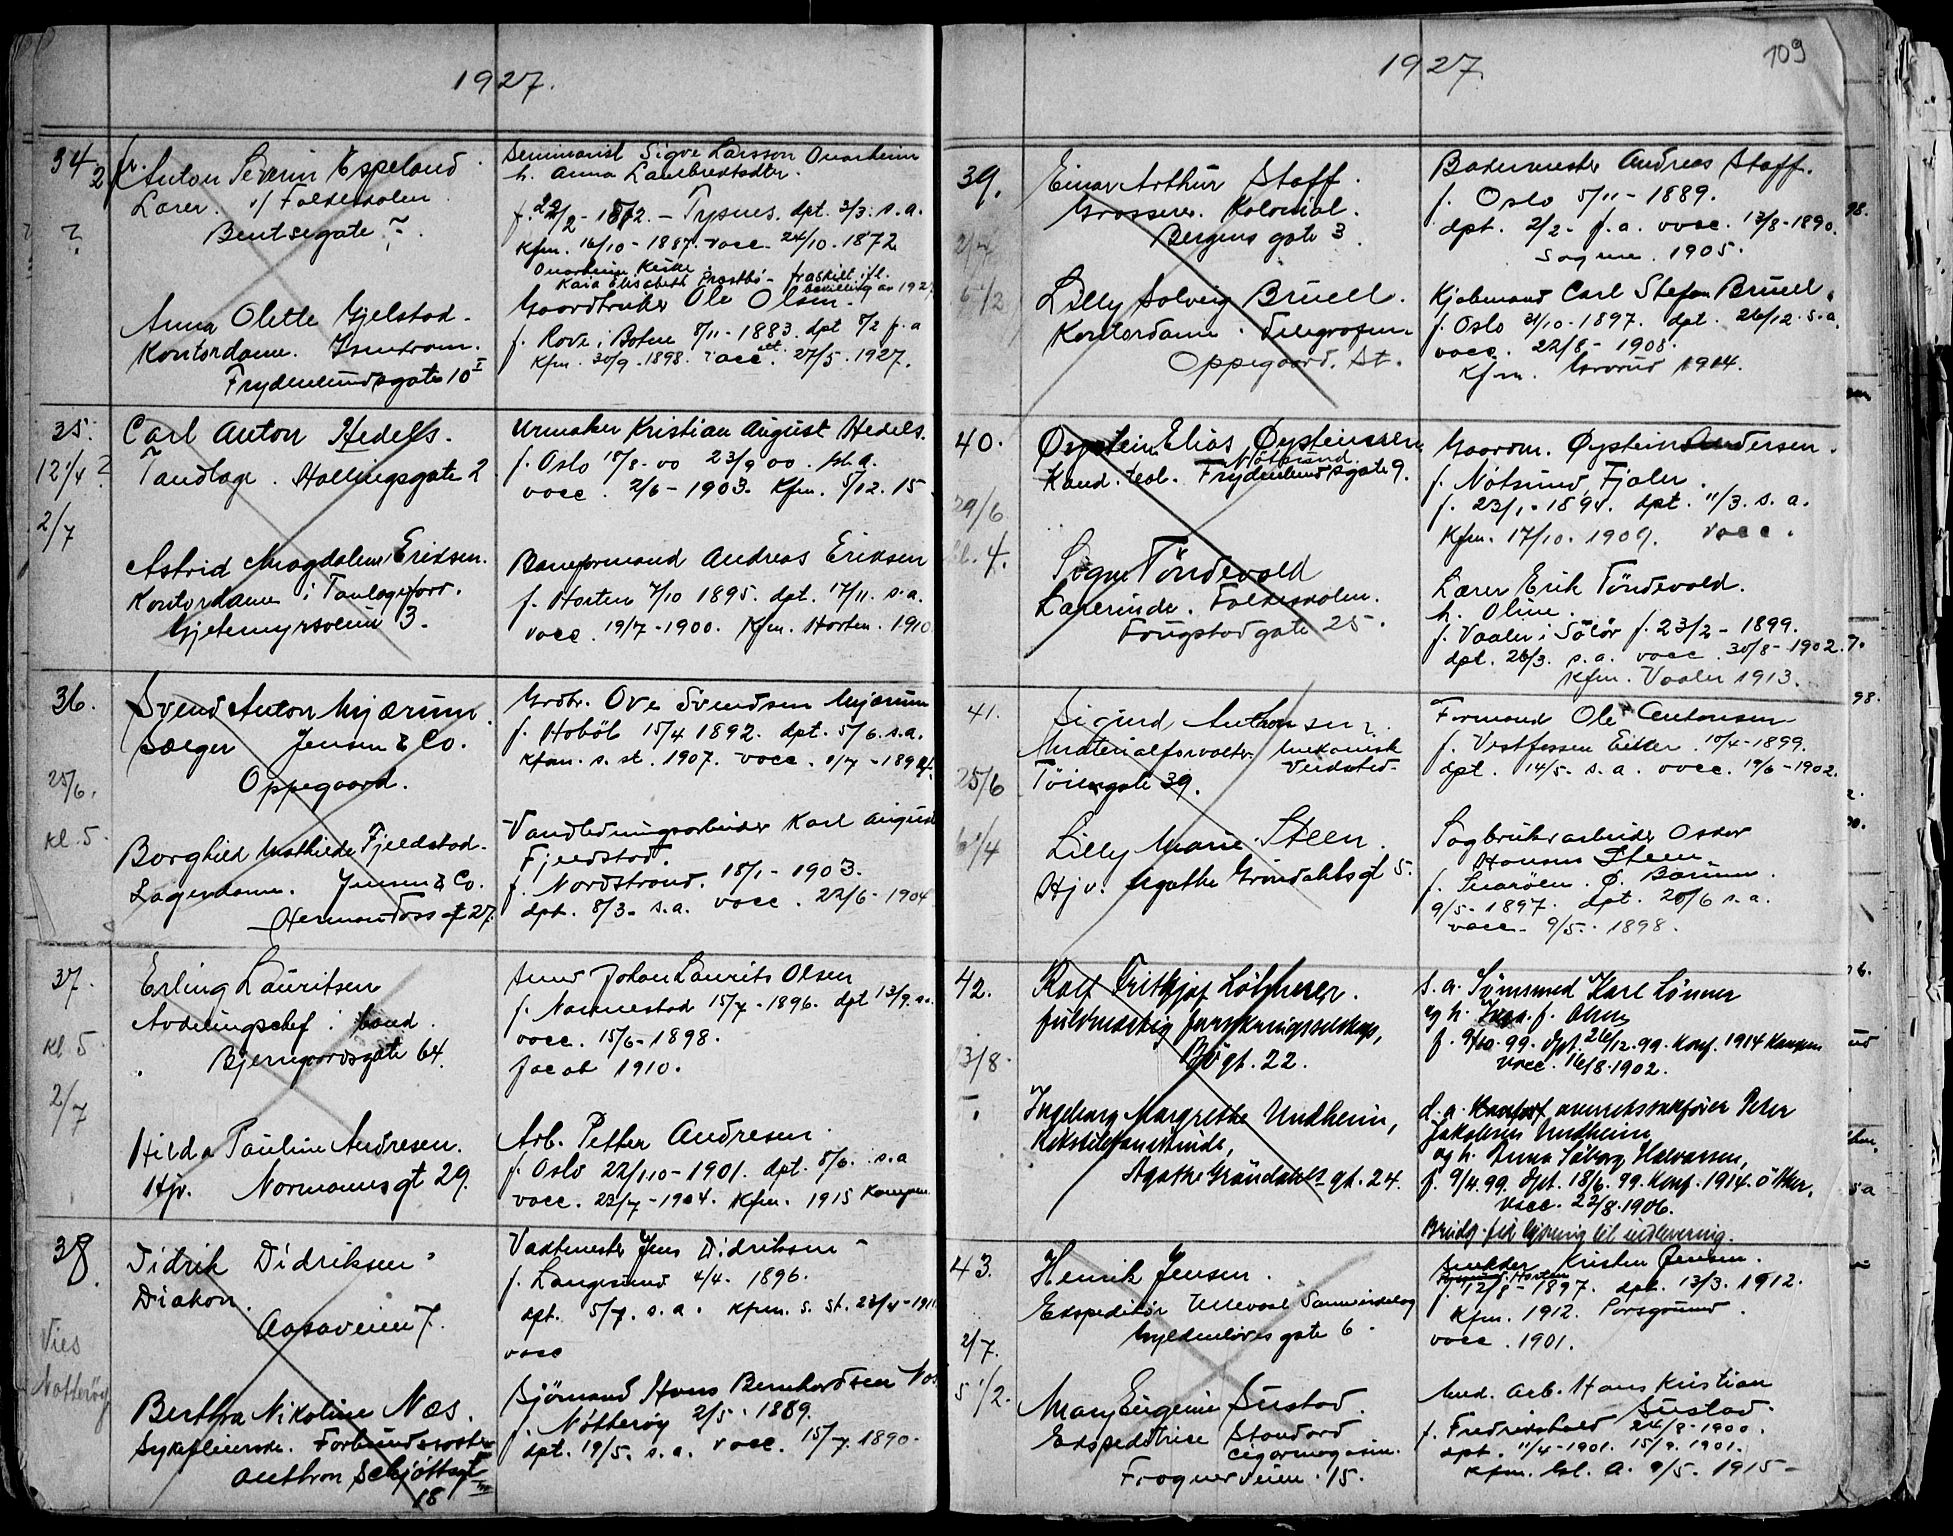 1927.
34.
2
fr. Anton Severin Espeland
Lærer v/ Folkeskolen
Bentsegate ?
?
Seminarist Sigve Larsson Onarheim
h. Anna
f. 22/2 - 1872. - Tysnes. dpt. 3/3. s.a.
Kfm. 16/10 - 1887. vacc. 24/10. 1872
Onarheim Kirke
Kaia Elisabeth - fraskilt ifl.
bevilling av 1927
Anna Olette Gjelstad.
Kontordame.
Frydenlundsgate 10 I
Gaardbruker Ole Olsen.
f. Rove i Botne 8/11 - 1883. dpt 8/2 f.a
Kfm. 30/9. 1898. vacc. att. 27/5. 1927.
35.
12 1/4 ?
2/7
Carl Anton Hedels.
Tandlæge. Hallingsgate 2
Urmaker Kristian August Hedels.
f. Oslo 18/8. 00 23/9 00.
vacc. 2/6 - 1903. Kfm. 5/12. 15
Astrid Magdalene Eriksen.
Kontordame i Tanlægeforr.
Gjetemyrsveien 3.
Baneformand Andreas Eriksen
f. Horten 7/10 1895. dpt. 17/11. s.a.
vacc. 19/7 - 1900. Kfm. Horten. 1910
36.
25/6.
kl. 5
Svend Anton Mjærum.
Sælger Jensen & Co.
Oppegaard.
Grdbr. Ove Svendsen Mjærum
f. Hobøl 15/4 1892. dpt. 5/6. s.a.
Kfm. s. st. 1907. vacc.
Borghild Mathilde Fjeldstad.
Lagerdame. Jensen & Co.
Herman Foss gt 27.
Vandledningsarbeider Karl August
Fjeldstad.
f. Nordstrand. 18/1 - 1903.
dpt. 8/3 - s.a. vacc. 22/6 - 1904
37.
kl 5
2/7
Erling Lauritsen
Avdelingschef i
Bjerregaardsgate 64.
Johan Laurits Olsen
f. 15/7 - 1896. dpt 13/9. s.a.
vacc. 15/6 - 1898.
Jacob 1910.
Hilda Pauline Andresen.
Hjv. Normannsgt 29.
Arb. Petter Andresen.
f. Oslo 22/10 - 1901. dpt. 8/6. s.a
vacc. 23/7 - 1904. Kfm. 1915 Kampen
38.
Vies
Nøtterøy
Didrik Didriksen
Diakon.
Aasaveien 7.
Vaktmester Jens Didriksen
f. Langesund 4/4. 1896.
dpt. 5/7. s.a. Kfm. s. st. 23/4 - 1911
vacc
Berthra Nikoline Næs.
Sykepleierske. Forbundssøster
Anthon Schjøttsgt
18
Sjömand Hans Bernhardsen Næs
f. Nötteröy 2/5. 1889.
dpt. 19/5. s.a. vacc. 15/7. 1890.
1927.
109
39.
2/7
6 1/2
Einar Arthur Staff.
Grosserer. Kolonial.
Bergens gate 3.
Bademester Andreas Staff.
f. Oslo 5/11 - 1889.
dpt. 2/2 - f.a. vacc. 13/8 - 1890.
Sagene 1905.
Lilly Solveig Bruell.
Kontordame. Telegrafen.
Oppegaard. St.
Kjøbmand Carl Stefan Bruell.
f. Oslo 31/10. 1897. dpt. 26/12. s.a.
vacc. 22/8 - 1908.
Kfm. Grorud 1914.
40.
29/6
kl. 4.
Øystein Elias Øysteinssen
Nøtsund
Kand. teol. Frydenlundsgate 9.
Gaardm. Øystein Andersen.
f. Nøtsund, Fjaler.
f. 23/1 - 1894. dpt. 11/3. s.a.
Kfm. 17/10. 1909. vacc.
Signe Töndevold
Lærerinde. Folkeskolen.
Fougstadgate 25.
Lærer Erik Töndevold.
h. Oline.
f. Vaaler i Sölör f. 23/2 - 1899.
dpt. 26/3. s.a. vacc. 30/8 - 1902.
Kfm. Vaaler 1913.
41.
25/6
6 1/4
Sigurd Antonsen.
Materialforvalter. Mekanisk
Verksted.
Töiengate 39.
Formand Ole Antonsen
f. Vestfossen Eiker. 10/4 - 1899.
dpt. 14/5 - s.a. vacc. 19/6 - 1902.
Lilly Marie Steen.
Hjv. Agathe Gröndahlsgt 5.
Sagbruksarbeider Oskar
Hansen Steen.
f. Snarøen. Ø. Bærum.
9/5 - 1897. dpt. 20/6 s.a.
vacc. 9/5. 1898.
42.
13/8.
Rolf Frithjof
fuldmægtig forsikringsselskap,
gt. 22.
s.a. Karl Lönner
og h. f. Olsen
f. 9/10. 99. dpt. 26/12. 99. Konf. 1914 Kampen
vacc. 16/8. 1902.
Ingeborg Margrethe Undheim,
Agathe Gröndahls gt. 24.
d.a. Peter
Jakobsen Undheim
og h. Anna
f. 9/4. 99. dpt. 18/6. 99. Konf. 1914.
vacc. 22/8. 1906.
43.
2/7.
5 1/2.
Henrik Jensen.
Ekspeditör Ullevaal Samvirkelag
Gyldenlöves gate 6.
Kristen Jensen.
f. 12/8 - 1897. dpt. 13/3. 1912.
Kfm. 1912. Porsgrund.
vacc. 1901.
Mary Eugenie Sustad.
Ekspeditrise Standard
Cigarmagasin.
Frognerveien. 15.
Arb. Hans Kristian
Sustad.
f. Fredrikshald 24/8 - 1900.
dpt. 11/4 - 1901. 15/9. 1901.
Kfm. Gl. A. 9/5. 1915 -